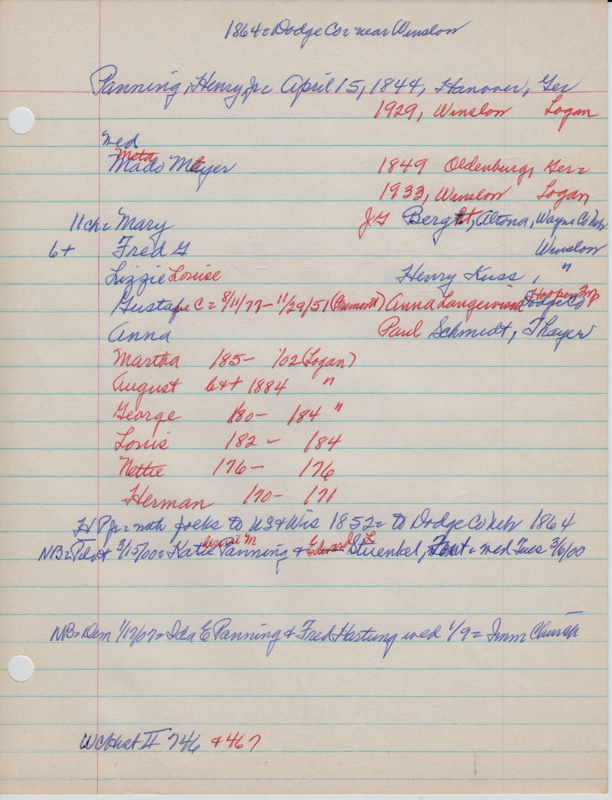 1864 = Dodge Co = near Winslow
Panning, Henry, Jr = April 15, 1844, Hanover, Ger
1929, Winslow Logan
wed
Meta
Mado Meyer 1849 Oldenburg, Ger =
1933, Winslow Logan
11ch = Mary J G Bergt, Altona, Wayne Co Neb
6+ Fred G Winslow
Lizzie Louise Henry Kuss, "
Hooper Twp
Gustave C = 8/11/77 - 11/29/51 (Fremont) Anna Langewisch Dodge Co
Anna Paul Schmidt, Thayer
Martha '85 - '02 (Logan)
August b&+ 1884 "
George '80 - '84 "
Louis '82 - '84
Nettie '76 - '76
Herman '70 - '71
H P Jr = with folks to US & Wis 1852 = to Dodge Co Neb 1864
NB = Pilot 3/15/00 = Katie Panning & Edward L Stuenkel, = wed Tues 3/6/00
NB = Dem 1/17/07 = Ida E Panning & Fred Hartung wed 1/9 = Imm Church
WCHist II 746 & 467